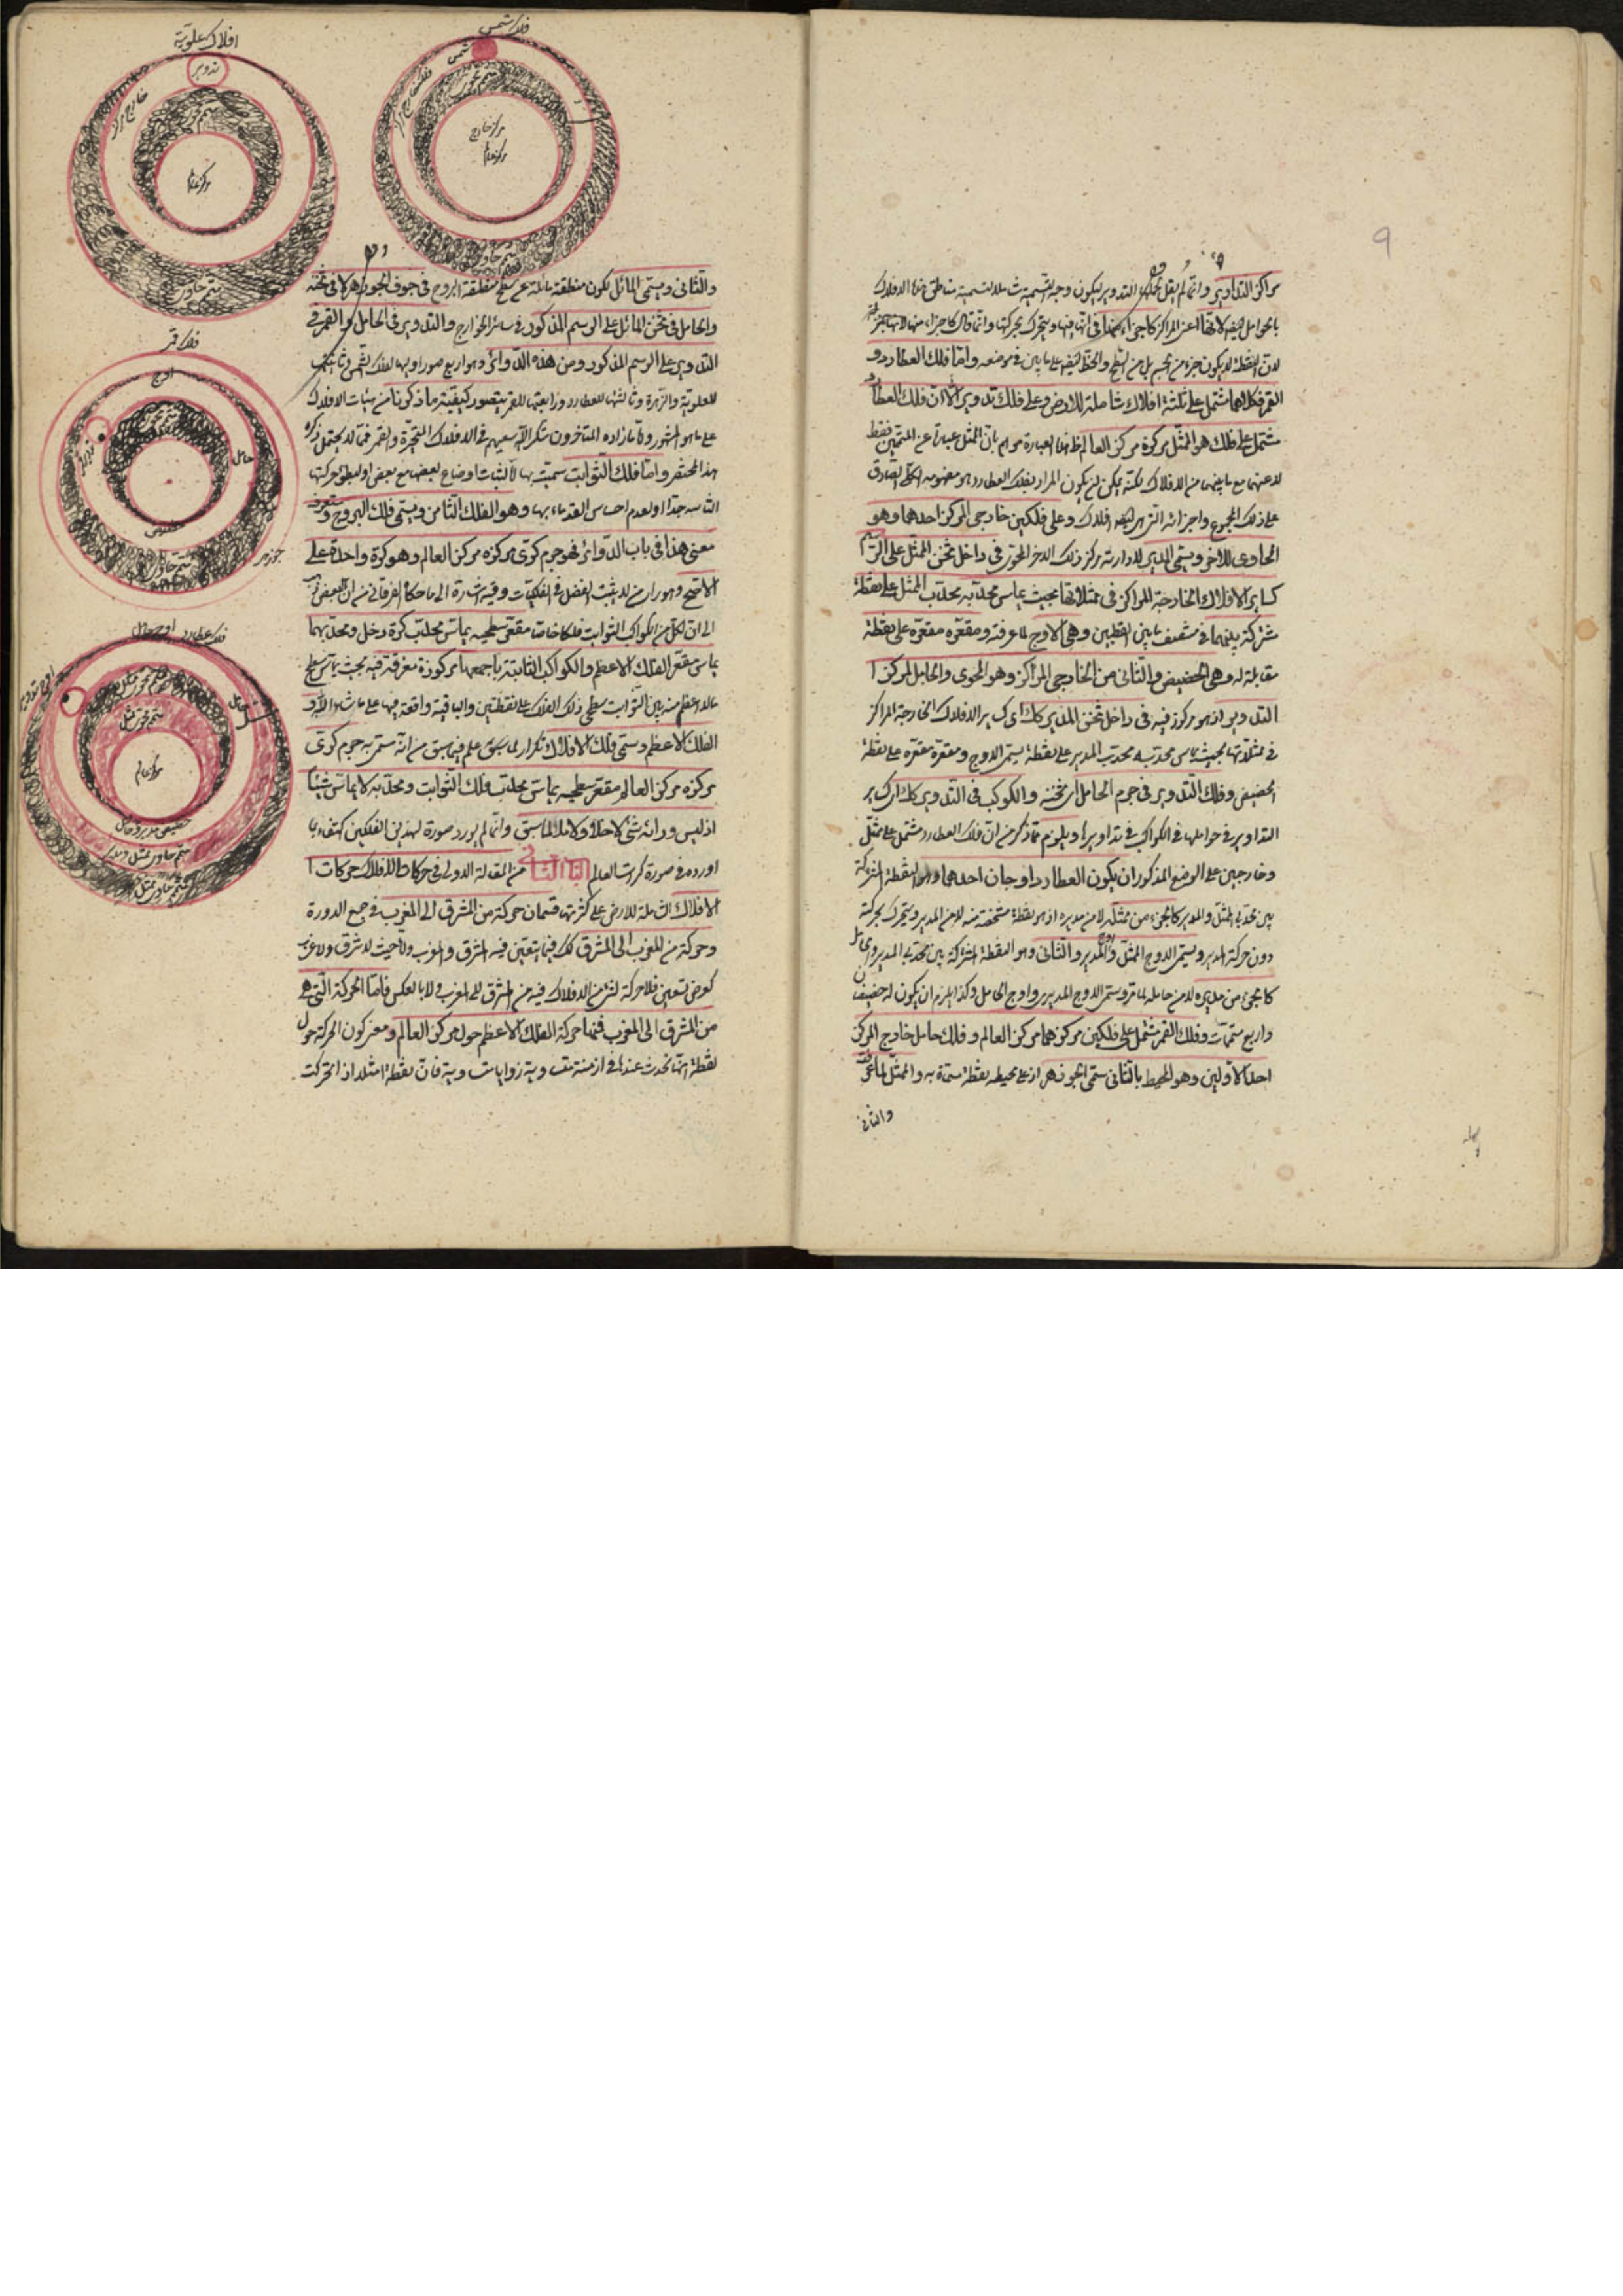 مراكز التداوير وانما لم يقل التدوير ليكون وجه التسمية
بالحوامل
لان النقطة لا يكون جزء من الجسم بل من السطح والخط على ما بين فى موضعه واما فلك العطارد و
القمر فكلاهما مشتمل على ثلثة افلاك شاملة للارض وعلى فلك تدوير الا ان فلك العطارد
مشتمل على فلك هو الممثل مركزه مركز العالم هذه العبارة بان الممثل عبارة عن المتممين فقط
لا عنهما مع ما بينهما من الافلاك يمكن ان يكون المراد بفلك العطارد هو مفهومه الكلى الصادق
على ذلك المجموع واجزائه افلاك وعلى فلكين خارجى المركز احدهما وهو
الحاوى للاخر ويسمى المدير لادارته مركز ذلك الاخر المحوى فى داخل ثخن الممثل على الرسم
كساير الافلاك الخارجة المراكز فى ممثلاتها بحيث يماس محدبه محدب الممثل على نقطة
مشتركة بينهما فى منتصف ما بين القطبين وهى الاوج لما عرفته ومقعره مقعره على نقطة
مقابلة له وهى الحضيض والثانى من الخارجى المراكز وهو المحوى والحامل لمركز ا
التدوير اذ هو مركوز فيه فى داخل ثخن المدير كذلك اى كساير الافلاك الخارجة المراكز
فى ممثلاتها بحيث يماس محدبه محدب المدير على نقطة يسمى الاوج ومقعره مقعره على نقطة
الحضيض وفلك التدوير فى جرم الحامل اى ثخنه والكوكب فى التدوير كذلك اى كساير
التداوير فى حواملها والكواكب فى تداويرها ويلزم مما ذكر من ان فلك العطارد مشتمل على ممثل
وخارجين على الوضع المذكور ان يكون العطارد اوجان احدهما وهو النقطة المشتركة
بين محدبى الممثل والمدير كالجزء من ممثله لا من مديره اذ هو نقطة مشخصة منه لا من المدير ويتحرك بحركته
دون حركة المدير ويسمى الاوج الممثل واوج المدير والثانى وهو النقطة المشتركة بين محدبى المدير والحامل
كالجزء من مديره لا من حامله لما مر ويسمى الاوج المديرى واوج الحامل وكذا يلزم ان يكون له حضيضان
واربع متممات وفلك القمر مشتمل على فلكين مركزهما مركز العالم وفلك حامل خارج المركز
احد الاولين وهو المحيط بالثانى يسمى الجوزهر اذ على محيطه نقطة مسماة به والممثل لما عرفت
والثانى
9
افلاك علوية
تدوير
خارج مركز
متمم محوى
مركز عالم
متمم حاوى
فلك شمس
شمس
فلك خارج مركز
متمم محوى
مركز خارج
مركز عالم
متمم حاوى
فلك قمر
اوج
حامل
متمم محوى
حضيض
متمم حاوى
جوزهر
فلك عطارد
اوج حامل
اوج مدير
حامل
متمم محوى ممثل
مركز عالم
حضيض مدير وحامل
متمم حاوى ممثل
والثانى ويسمى المائل لكون منطقته مائلة عن سطح منطقة البروج فى جوف الجوزهر لا فى ثخنه
والحامل فى ثخن المائل على الرسم المذكور فى سائر الخوارج والتدوير فى الحامل والقمر فى
التدوير على الرسم المذكور ومن هذه الدوائر وهو اربع صور اوليها لفلك الشمس وثانيتها
للعلوية والزهرة وثالثتها للعطارد ورابعتها للقمر يتصور كيفية ما ذكرنا من هيئات الافلاك
على ما هو المشهور واما ما زاده المتاخرون شكر الله سعيهم فى الافلاك المتحيرة والقمر فمما لا يحتمل ذكره
هذا المختصر واما فلك الثوابت سميت بها لثبات اوضاع بعضها مع بعض او لبطؤ حركتها
الثانية جدا او لعدم احساس القدماء بها وهو الفلك الثامن ويسمى فلك البروج وستعرف
معنى هذا فى باب الدوائر فهو جرم كرى مركزه مركز العالم وهو كرة واحدة على
الاصح
الى ان لكل من الكواكب الثوابت فلكا خاصا مقعر سطحيه يماس محدب كرة زحل ومحدبهما
يماس مقعر الفلك الاعظم والكواكب الثابتة باجمعها مركوزة مغرقة فيه بحيث يماس سطح
ما لا اعظم منه بين الثوابت سطحى ذلك الفلك على نقطتين والباقية واقعة فيها على ما شاء
الفلك الاعظم ويسمى فلك الافلاك تكرار لما سبق علم فيما سبق من انه مسمى به جرم كرى
مركزه مركز العالم مقعر سطحيه يماس محدب فلك الثوابت ومحدبه لا يماس شيئا
اذ ليس ورائه شئ لا خلأ ولا ملأ لما سبق وانما لم يورد صورة لهذين الفلكين اكتفاء بما
اورده فى صورة كرات العالم الباب الثانى من المقالة الاولى فى حركات الافلاك حركات ا
الافلاك الشاملة للارض على كثرتها قسمان حركة من المشرق الى المغرب فى جميع الدورة
وحركة من المغرب الى المشرق كذلك فيما يتعين فيه المشرق والمغرب واما حيث لا شرق ولا غرب
كعرض تسعين فلا حركة لشئ من الافلاك فيه من المشرق الى المغرب ولا بالعكس فاما الحركة التى هى
من المشرق الى المغرب فمنها حركة الفلك الاعظم حول مركز العالم ومعنى كون الحركة حول
نقطة انها تحدث عندها فى ازمنة متساوية زوايا متساوية فان نقطة امثلا اذا تحركت